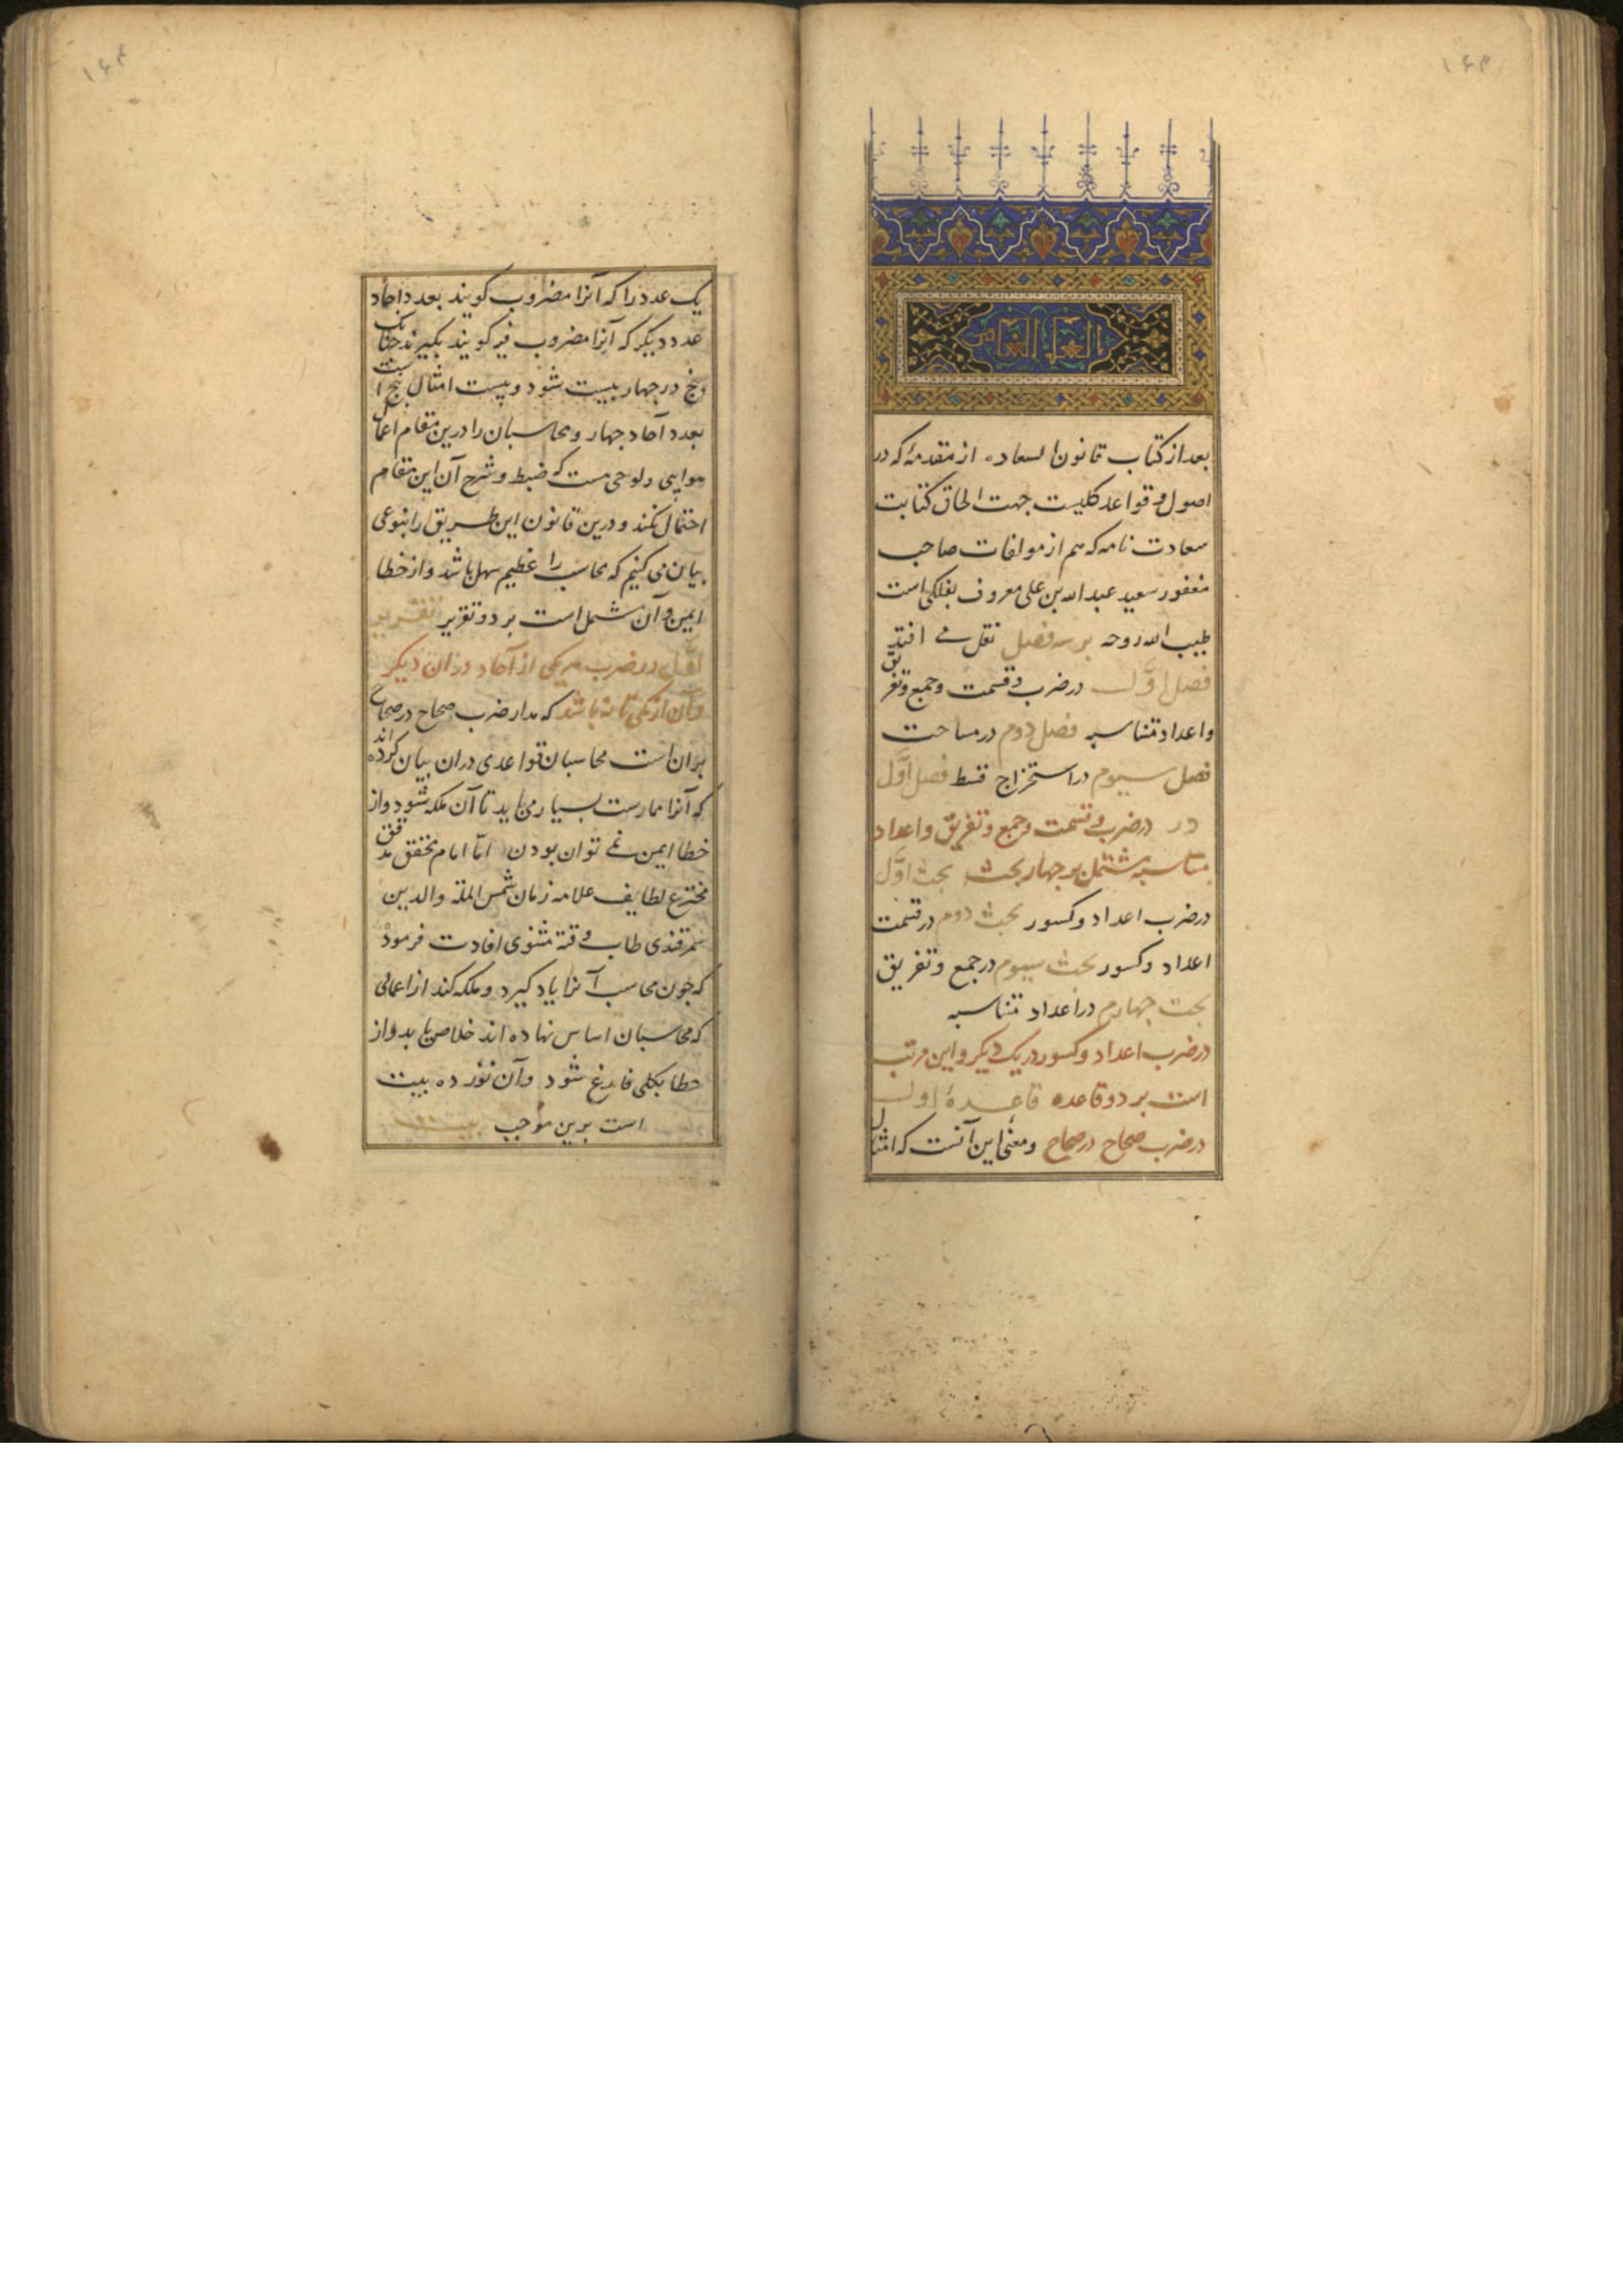 ۱۶۳
بعد از کتاب قانون السعاده از مقدمهٔ که در
اصول و قواعد کلیست جهت الحاق کتابت
سعادت نامه که هم از مولفات صاحب
مغفور سعید عبد الله بن علی معروف بفلکی است
طیب الله روحه بر سه فصل نقل می افتد
فصل اوّل در ضرب و قسمت و جمع و تفریق
و اعداد متناسبه فصل دوم در مساحت
فصل سیوم در استخراج قسط فصل اوّل
در در ضرب و قسمت و جمع و تفریق و اعداد
متناسبه مشتمل بر چهار بحث بحث اوّل
در ضرب اعداد و کسور بحث دوم در قسمت
اعداد و کسور بحث سیوم در جمع و تفریق
بحث چهارم در اعداد متناسبه
در ضرب اعداد و کسور در یک دیکر و این مرتب
است بر دو قاعده قاعدهٔ اول
در ضرب صحاح در صحاح و معنی این آنست که امثال
۱۶۴
یک عدد را که آنرا مضروب کویند بعدد احاد
عدد دیکر که آنرا مضروب فیه کویند بکیرند جنانک
پنج در جهار بیست شود و بیست امثال پنج است
بعدد آحاد جهار و محاسبان را درین مقام اعمال
هوایی و لوحی هست که ضبط و شرح آن این مقام
احتمال نکند و درین قانون این طریق را بنوعی
بیان می کنیم که محاسب را عظیم سهل باشد و از خطا
ایمن و آن مشتمل است بر دو تقریر تقریر
اوّل در ضرب هر یکی از آحاد در آن دیکر
و آن از یکی تا نه باشد که مدار ضرب صحاح در صحاح
بر آن است محاسبان قواعدی در آن بیان کرده اند
که آنرا ممارست بسیار می باید تا آن ملکه شود و از
خطا ایمن نمی توان بودن امّا امام محقق مدقق
مخترع لطایف علامه زمان شمس الملة والدین
سمرقندی طاب وقته مثنوی افادت فرمود
که جون محاسب آنرا یاد کیرد و ملکه کند از اعمالی
که محاسبان اساس نهاده اند خلاص یابد و از
خطا بکلی فارغ شود و آن نوزده بیت
است برین موجب بیت